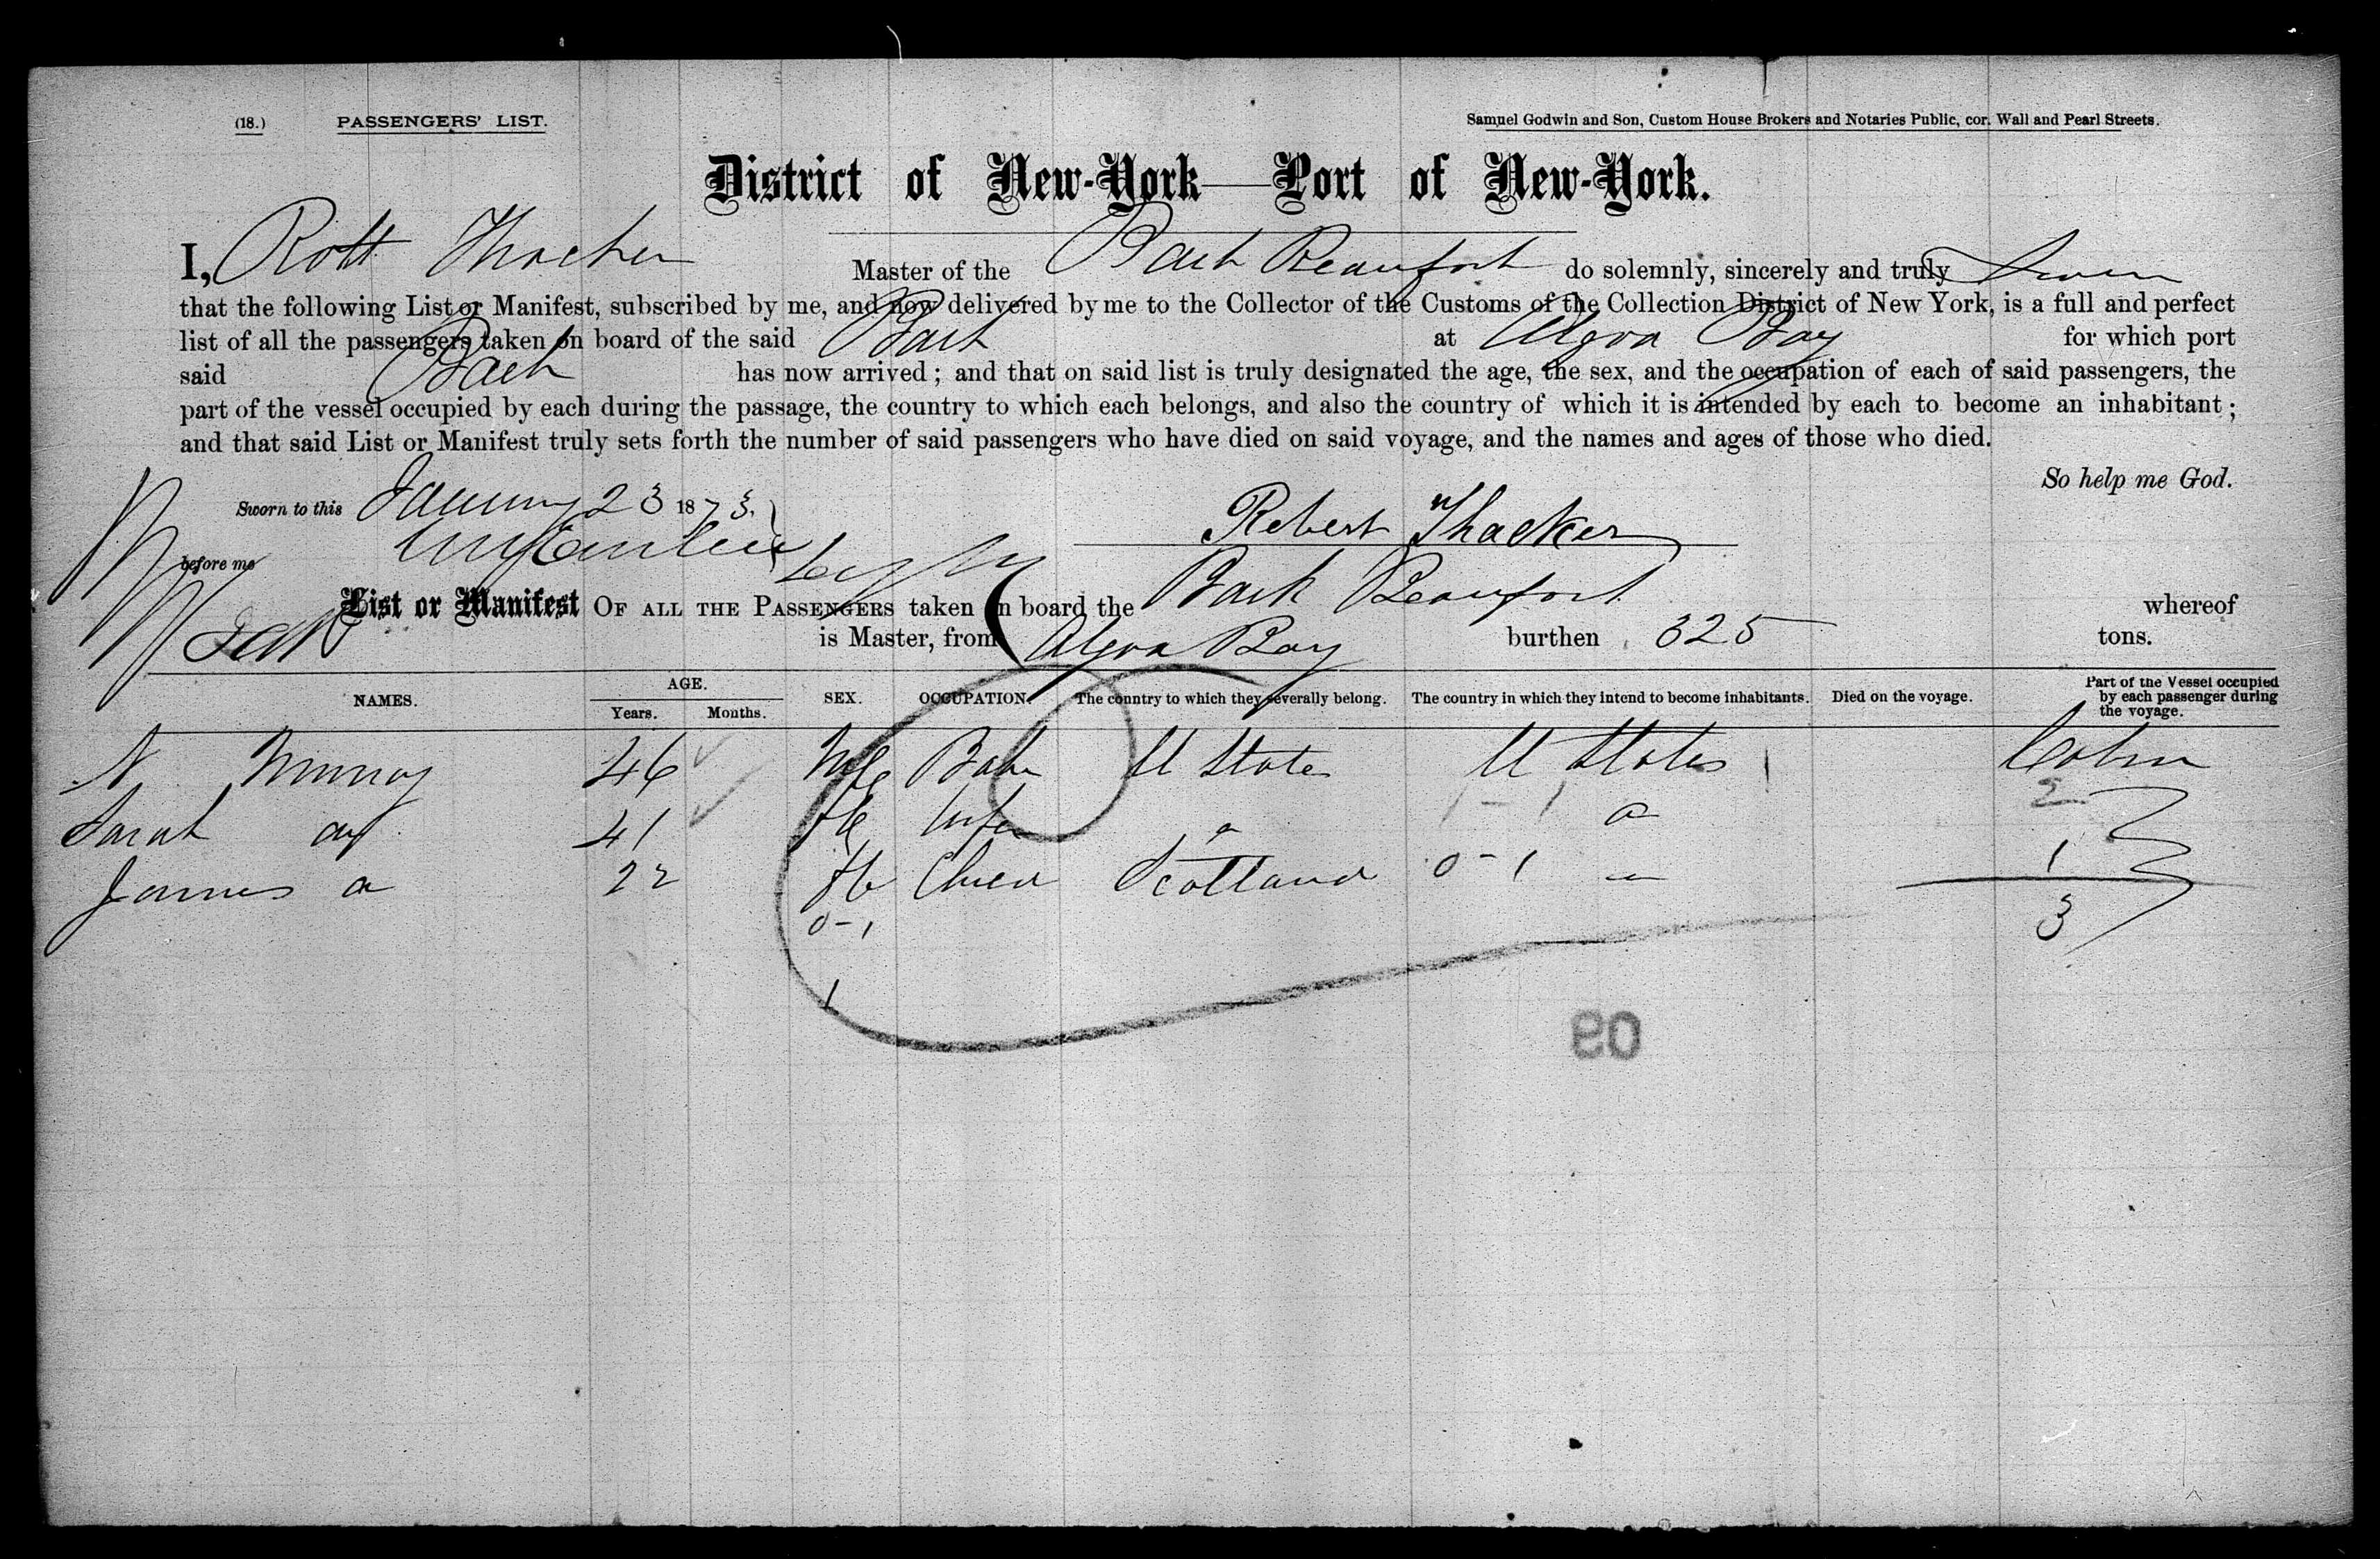 (18.) PASSENGERS' LIST. Samuel Godwin and Son, Custom House Brokers and Notaries Public, cor. Wall and Pearl Streets.
District of New-York—Port of New-York.
I, Robt Thacker Master of the Bark Beaufort do solemnly, sincerely and truly Swear
that the following List or Manifest, subscribed by me, and now delivered by me to the Collector of the Customs of the Collection District of New York, is a full and perfect
list of all the passengers taken on board of the said Bark at Algoa Bay for which port
said Bark has now arrived; and that on said list is truly designated the age, the sex, and the occupation of each of said passengers, the
part of the vessel occupied by each during the passage, the country to which each belongs, and also the country of which it is intended by each to become an inhabitant;
and that said List or Manifest truly sets forth the number of said passengers who have died on said voyage, and the names and ages of those who died.
So help me God.
Sworn to this January 23 1873.
Robert Thacker
before me
List or Manifest OF ALL THE PASSENGERS taken on board the Bark Beaufort whereof
is Master, from Algoa Bay burthen 325 tons.
NAMES. AGE. Years. Months. SEX. OCCUPATION. The country to which they severally belong. The country in which they intend to become inhabitants. Died on the voyage. Part of the Vessel occupied by each passenger during the voyage.
N Murray 46 Mle U States U States 1 Cabin
Sarah 41 Wife " 1-1 " 2
James " 22 Scotland 0-1 " 1
0-1 3
1
80